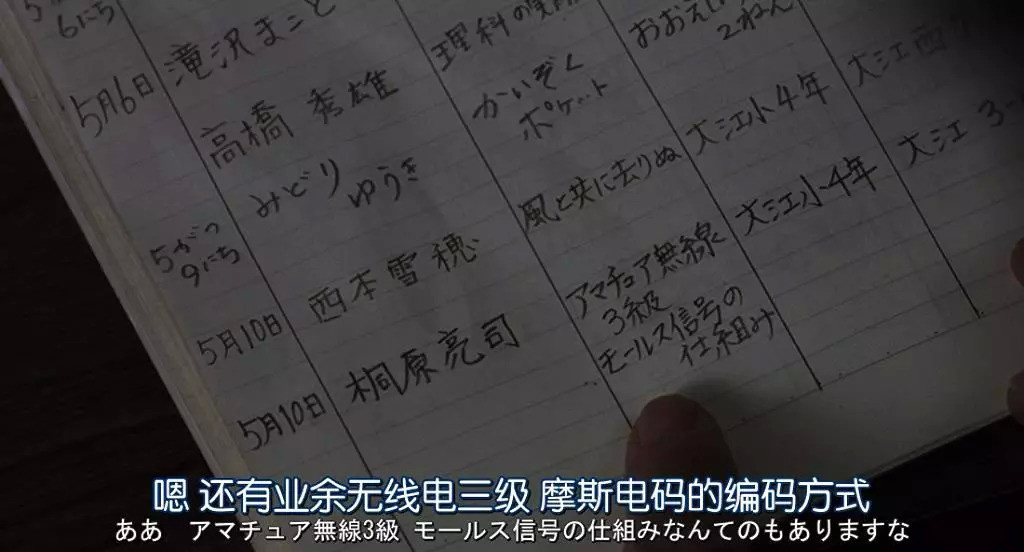 6にち
滝沢まこと
5月6日
高橋 秀雄
理科の
5がつ
9にち
みどり
ゆうき
かいぞく
ポケット
おおえ
2ねん
5月10日
西本雪穂
風と共に去りぬ
大江小4年
大江西
5月10日
桐原亮司
アマチュア無線
3級
モールス信号の
仕組み
大江小4年
大江 3-
嗯 还有业余无线电三级 摩斯电码的编码方式
ああ アマチュア無線3級 モールス信号の仕組みなんてのもありますな